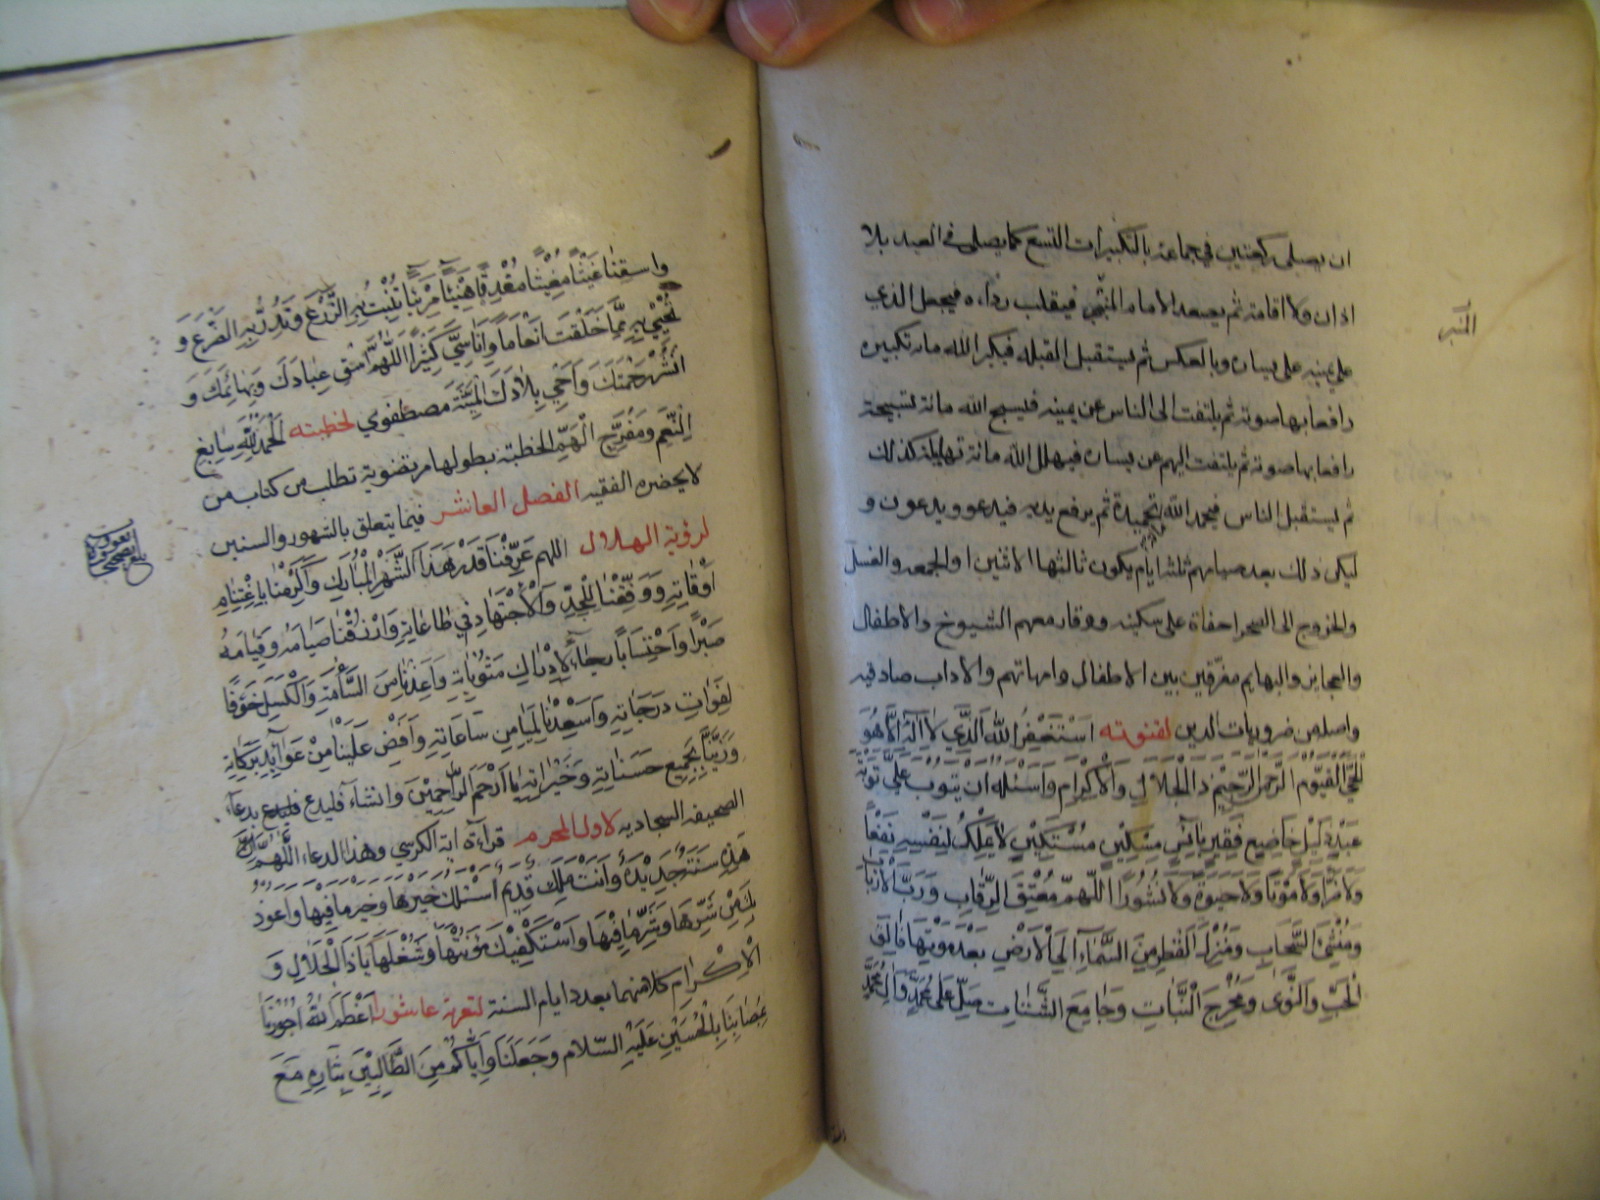 ان يصلى ركعتين فى جماعة بالتكبيرات التسع كما يصلى فى العيد بلا
اذان ولا اقامة ثم يصعد الامام المنبر فيقلب رداءه فيجعل الذي
على يمينه على يساره وبالعكس ثم يستقبل القبله فيكبر الله مائة تكبيره
رافعا بها صوته ثم يلتفت الى الناس عن يمينه فيسبح الله مائة تسبيحة
رافعا بها صوته ثم يلتفت اليهم عن يساره فيهلل الله مائة تهليلة كذلك
ثم يستقبل الناس فيحمد الله تحميدة ثم يرفع يديه فيدعو ويدعون و
ليكن ذلك بعد صيامهم ثلثة ايام يكون ثالثها الاثنين او الجمعه والغسل
والخروج الى الصحرا حفاة على سكينه ووقار معهم الشيوخ والاطفال
والعجايز والبهايم مفرقين بين الاطفال وامهاتهم والاداب صادقيه
واصله من ضروريات الدين لقنوته اَسْتَغْفِرُ اللهَ الَّذِي لَا اِلٰهَ اِلَّا هُوَ
الْحَيُّ الْقَيُّومُ الرَّحْمٰنُ الرَّحِيْمُ ذِالْجَلَالِ وَالْاِكْرَامِ وَاَسْئَلُهُ اَنْ يَتُوْبَ عَلَيَّ تَوْبَةَ
عَبْدٍ ذَلِيْلٍ خَاضِعٍ فَقِيْرٍ بَائِسٍ مِسْكِيْنٍ مُسْتَكِيْنٍ لَا يَمْلِكُ لِنَفْسِهِ نَفْعًا
وَلَا ضَرًّا وَلَا مَوْتًا وَلَا حَيٰوةً وَلَا نُشُوْرًا اَللّٰهُمَّ مُعْتِقَ الرِّقَابِ وَرَبَّ الْاَرْبَابِ
وَمُنْشِئَ السَّحَابِ وَمُنْزِلَ الْقَطْرِ مِنَ السَّمَاءِ اِلَى الْاَرْضِ بَعْدَ مَوْتِهَا فَالِقَ
الْحَبِّ وَالنَّوٰى وَمُخْرِجَ النَّبَاتِ وَجَامِعَ الشَّتَاتِ صَلِّ عَلٰى مُحَمَّدٍ وَاٰلِ مُحَمَّدٍ
المنبر
وَاسْقِنَا غَيْثًا مُغِيْثًا مُغْدِقًا هَنِيْئًا مَرِيْئًا تُنْبِتُ بِهِ الزَّرْعَ وَتُدِرُّ بِهِ الضَّرْعَ وَ
تُحْيِيْ بِهِ مِمَّا خَلَقْتَ اَنْعَامًا وَاَنَاسِيَّ كَثِيْرًا اَللّٰهُمَّ اسْقِ عِبَادَكَ وَبَهَائِمَكَ وَ
انْشُرْ رَحْمَتَكَ وَاَحْيِ بِلَادَكَ الْمَيِّتَةَ مصطفوي لخطبته اَلْحَمْدُ لِلّٰهِ سَابِغِ
النِّعَمِ وَمُفَرِّجِ الْهَمِّ الخطبة بطولها مرتضوية تطلب من كتاب من
لا يحضره الفقيه الفصل العاشر فيما يتعلق بالشهور والسنين
لرؤية الهلال اللهم عَرِّفْنَا قَدْرَ هَذَا الشَّهْرِ الْمُبَارَكِ وَاَكْرِمْنَا بِاغْتِنَامِ
اَوْقَاتِهِ وَوَفِّقْنَا لِلْجِدِّ وَالْاِجْتِهَادِ فِي طَاعَاتِهِ وَارْزُقْنَا صِيَامَهُ وَقِيَامَهُ
صَبْرًا وَاحْتِسَابًا رَجَاءً لِاِدْرَاكِ مَثُوْبَاتِهِ وَاَعِذْنَا مِنَ السَّأْمَةِ وَالْكَسَلِ خَوْفًا
لِفَوَاتِ دَرَجَاتِهِ وَاَسْعِدْنَا بِمَيَامِنِ سَاعَاتِهِ وَاَفِضْ عَلَيْنَا مِنْ عَوَائِدِ بَرَكَاتِهِ
وَزَيِّنَّا بِجَمِيْعِ حَسَنَاتِهِ وَخَيْرَاتِهِ يَا اَرْحَمَ الرَّاحِمِيْنَ وان شاء فليدع بدعاء
الصحيفه السجاديه لاول المحرم قراءة اية الكرسي وهذا الدعاء اَللّٰهُمَّ اِنَّ
هَذِهِ سَنَةٌ جَدِيْدَةٌ وَاَنْتَ مَلِكٌ قَدِيْمٌ اَسْئَلُكَ خَيْرَهَا وَخَيْرَ مَا فِيْهَا وَاَعُوْذُ
بِكَ مِنْ شَرِّهَا وَشَرِّ مَا فِيْهَا وَاَسْتَكْفِيْكَ مَؤُنَتَهَا وَشُغْلَهَا يَا ذَا الْجَلَالِ وَ
الْاِكْرَامِ كلاهما بعدد ايام السنة لتعزية عاشورا اَعْظَمَ اللهُ اُجُوْرَنَا
بِمُصَابِنَا بِالْحُسَيْنِ عَلَيْهِ السَّلَام وَجَعَلَنَا وَاِيَّاكُمْ مِنَ الطَّالِبِيْنَ بِثَارِهِ مَعَ